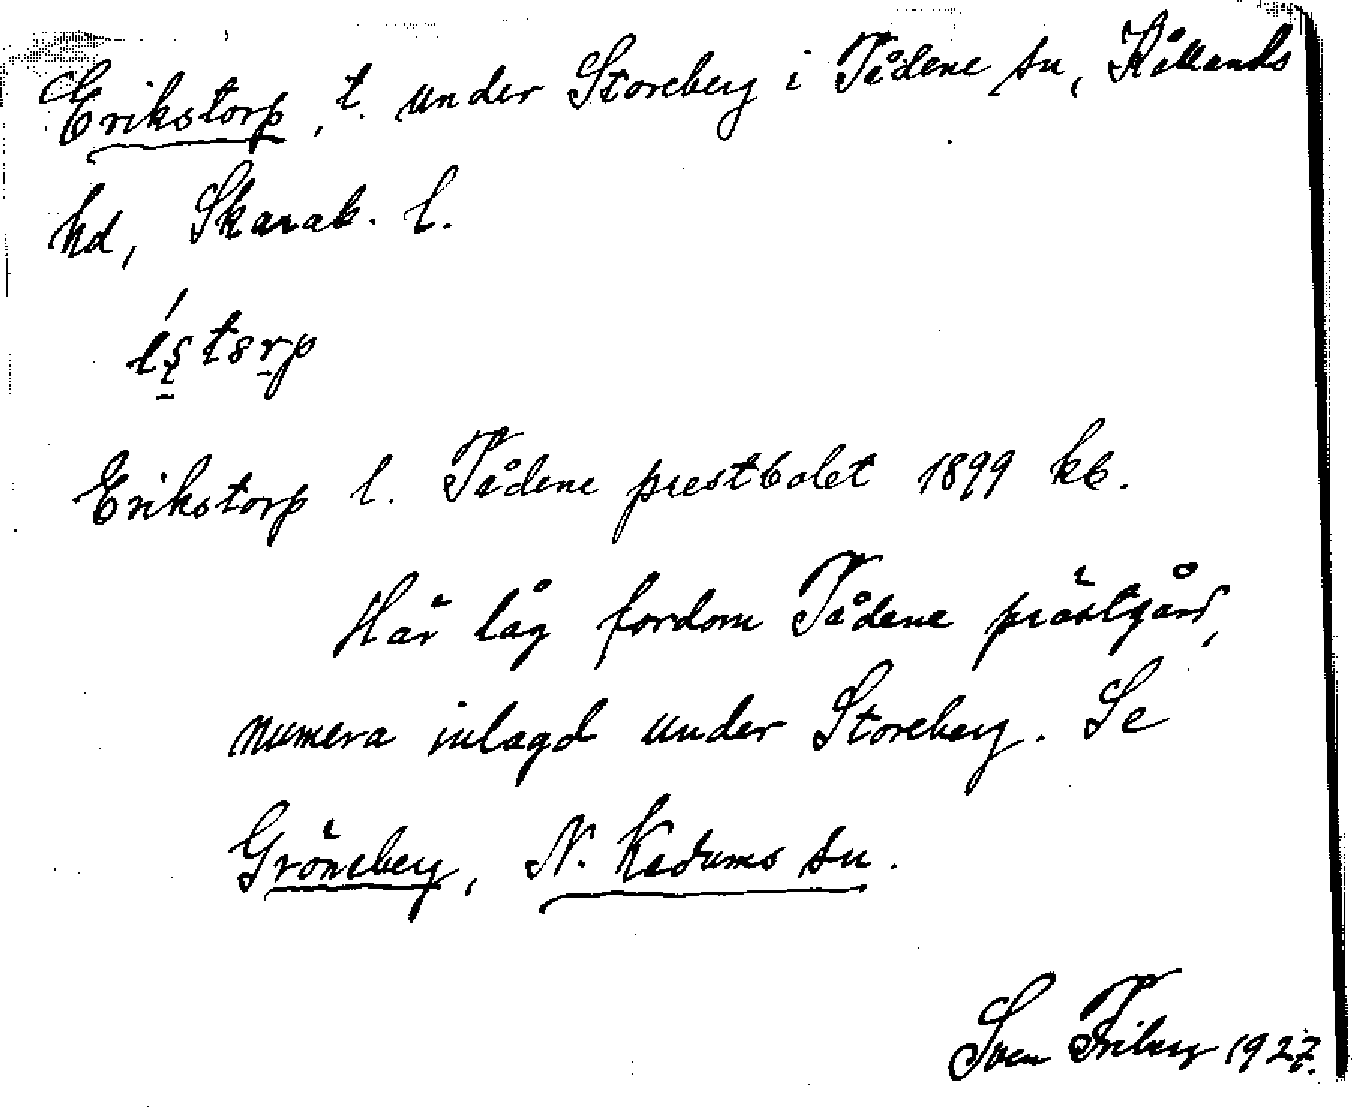 Erikstorp, t. under Storeberg i Tådene sn, Kållands
hd, Skarab. l.
Erikstorp l. Tådene prestbolet 1899 kb.
Här låg fordom Tådene prästgård,
numera inlagd under Storeberg. Se
Gröneberg, N. Kedums sn.
Sven Friberg 1927.